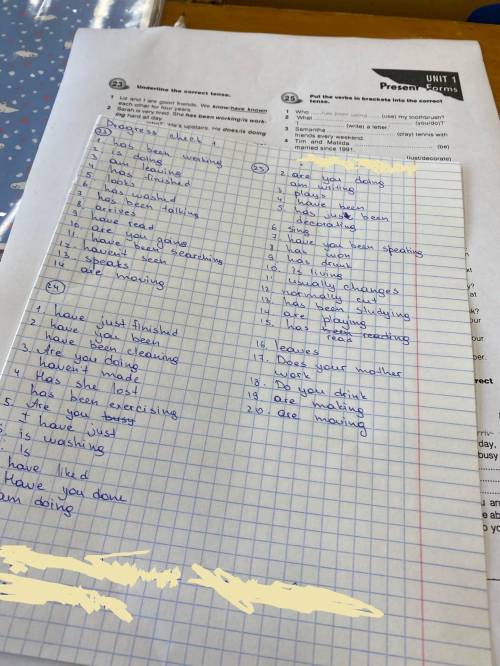 UNIT 1
Present Forms
23 Underline the correct tense.
1 Liz and I are good friends. We know/have known
each other for four years.
2 Sarah is very tired. She has been working/is work-
ing hard all day.
He's upstairs. He does/is doing
25 Put the verbs in brackets into the correct
tense.
1 Who ...has been using... (use) my toothbrush?
2 What (you/do)?
I (write) a letter.
3 Samantha (play) tennis with
friends every weekend.
4 Tim and Matilda (be)
married since 1991.
(just/decorate)
Progress check 1
23
1. has been working
2. is doing
3. am leaving
has finished
5. looks
6. has washed
7. has been talking
8. arrives
9. have read
10. are you going
11. have been searching
12. haven't seen
13. speaks
14 are moving
24
1. have just finished
2. have you been
have been cleaning
3. Are you doing
haven't made
4. Has she lost
has been exercising
5. Are you busy
I have just
is washing
Is
have liked
Have you done
am doing
25
2. are you doing
am writing
3. plays
4. have been
5. has just been
decorating
6. sing
7. have you been speaking
8. has won
9. has drunk
10. Is living
11. usually changes
12. normally cut
13. has been studying
14. are playing
15. has been reading
read
16. leaves
17. Does your mother
work
18. Do you drink
19 are making
20. are moving